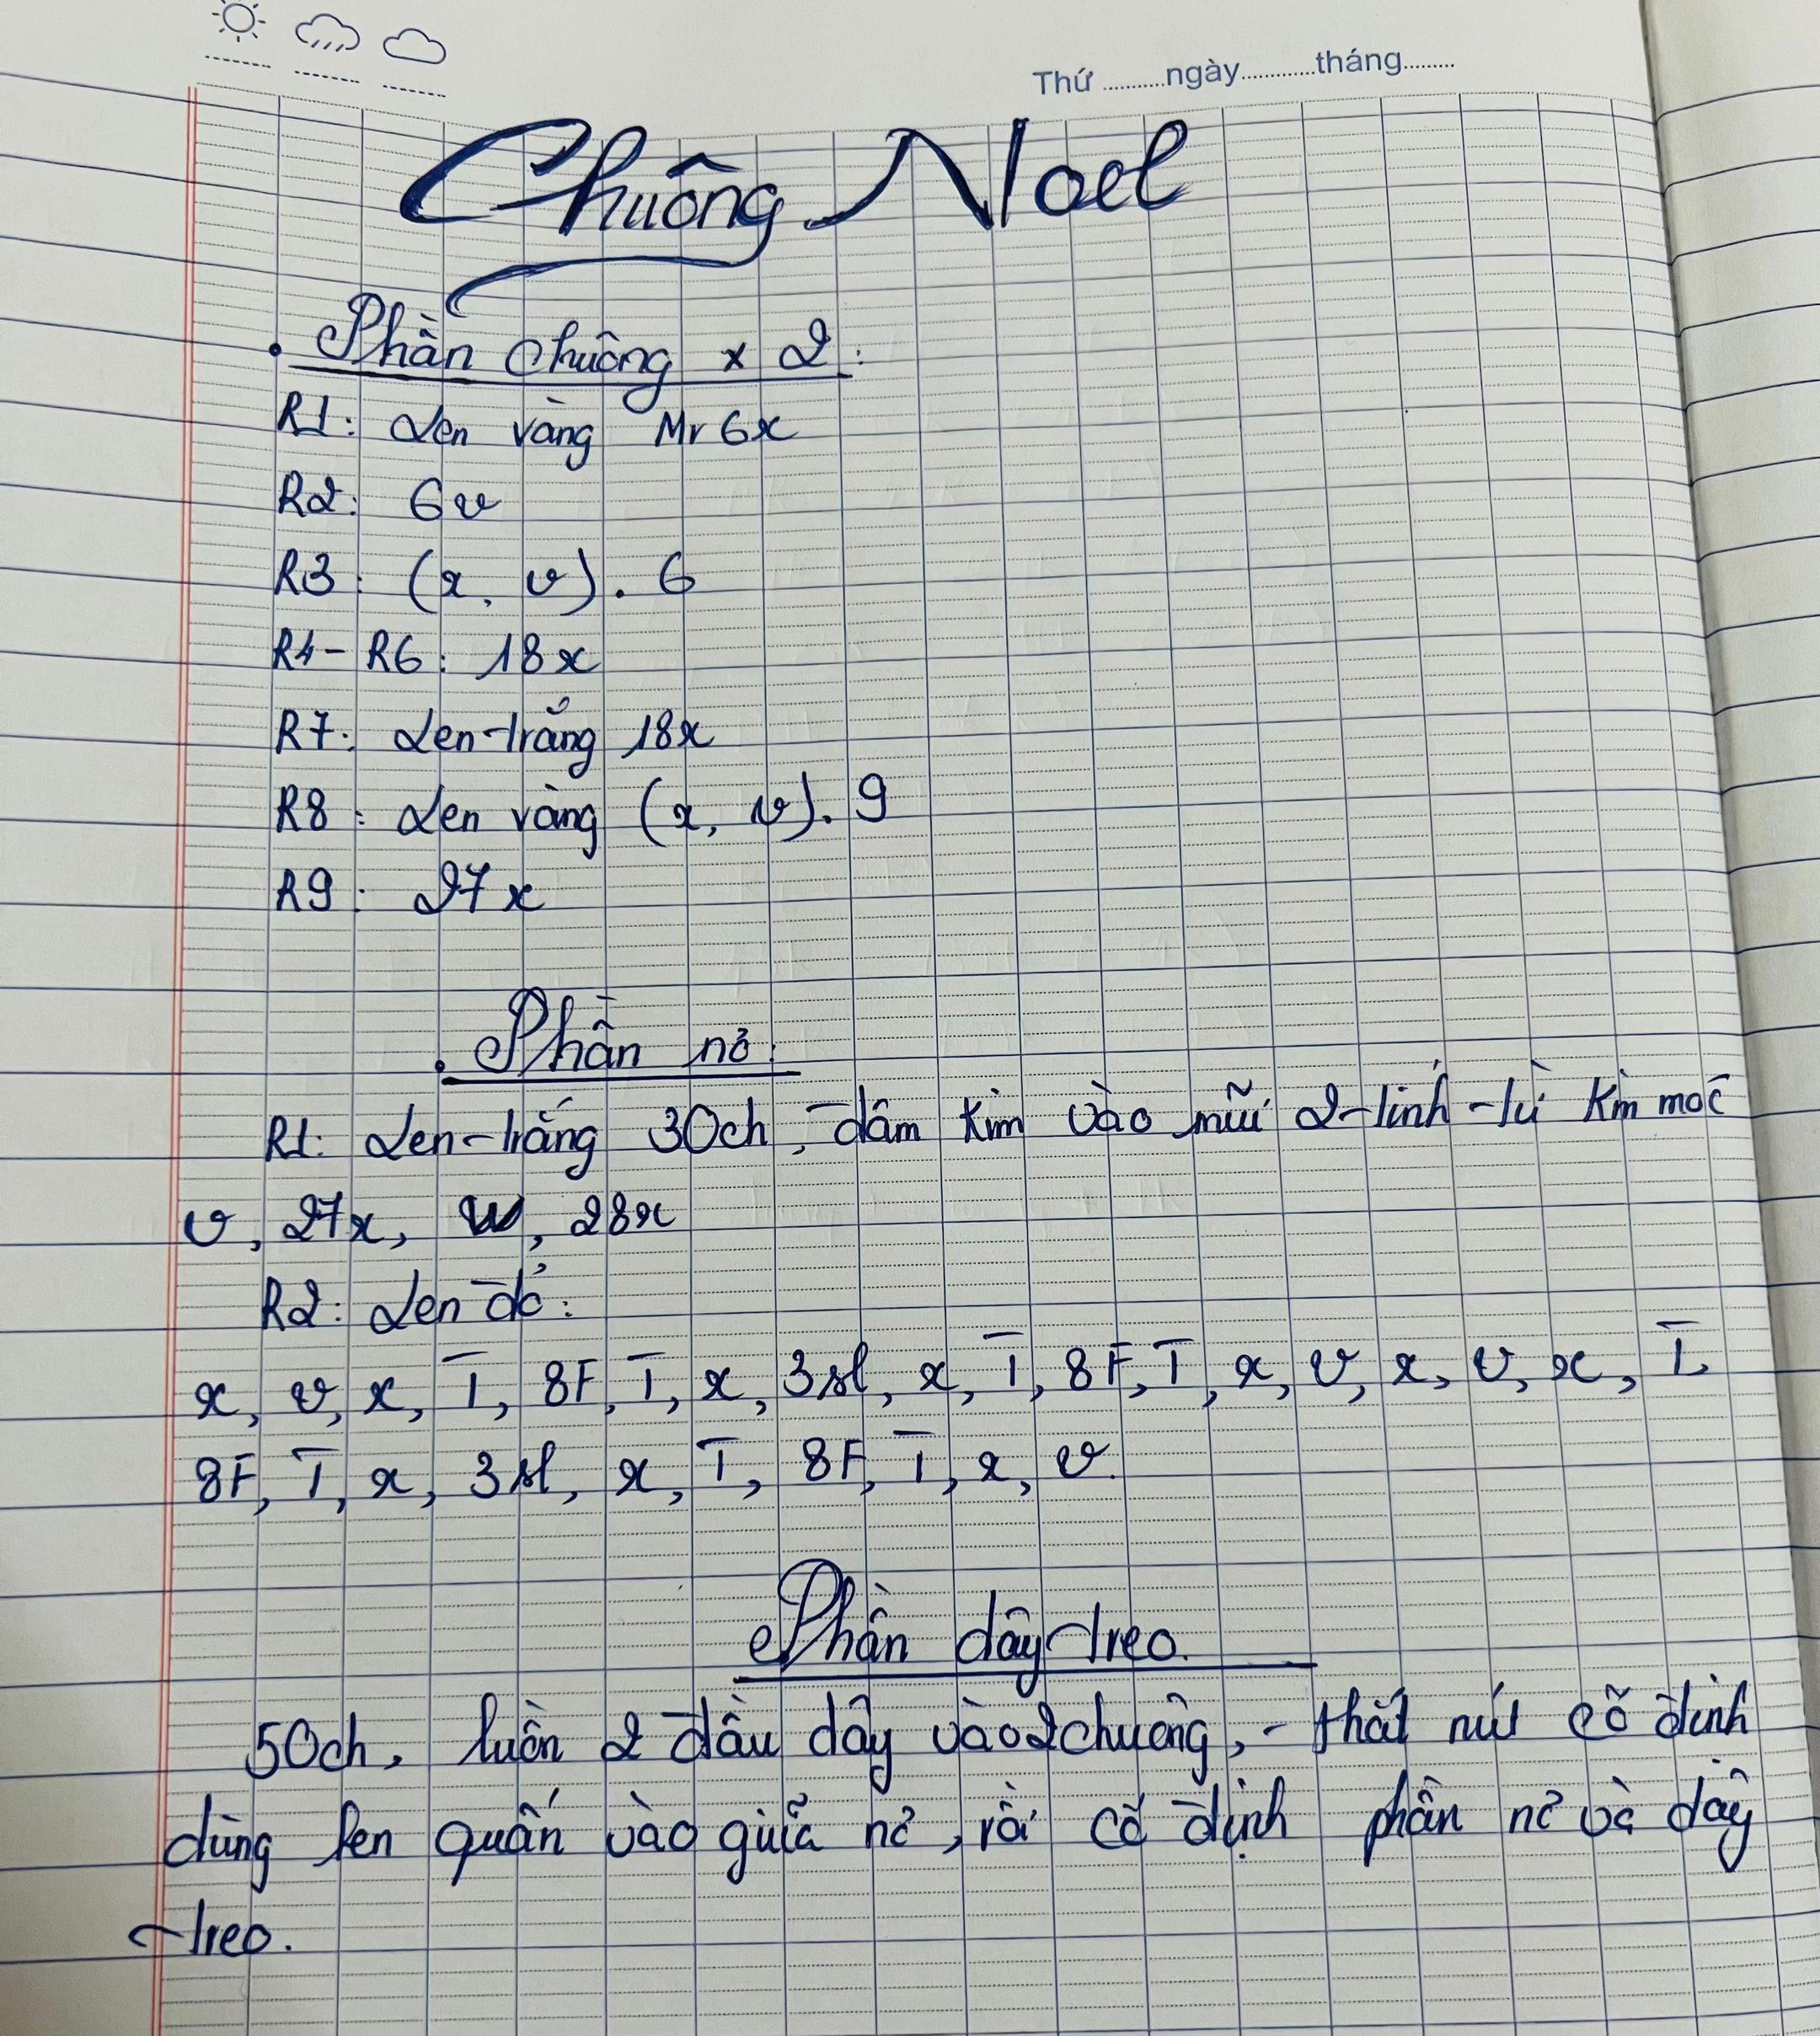 Thứ ........ngày............tháng.........
Chuông Noel
• Phần chuông x 2:
R1: Len vàng Mr 6x
R2: 6v
R3: (x, v). 6
R4 - R6: 18x
R7: Len trắng 18x
R8: Len vàng (x, v). 9
R9: 27x
• Phần nơ:
R1: Len trắng 30ch, đâm kim vào mũi 2 tính từ kim móc
v, 27x, w, 28x
R2: Len đỏ:
x, v, x, T, 8F, T, x, 3sl, x, T, 8F, T, x, v, x, v, x, T,
8F, T, x, 3sl, x, T, 8F, T, x, v.
Phần dây treo.
50ch, luồn 2 đầu dây vào 2 chuông, thắt nút cố định
dùng len quấn vào giữa nơ, rồi cố định phần nơ và dây
treo.